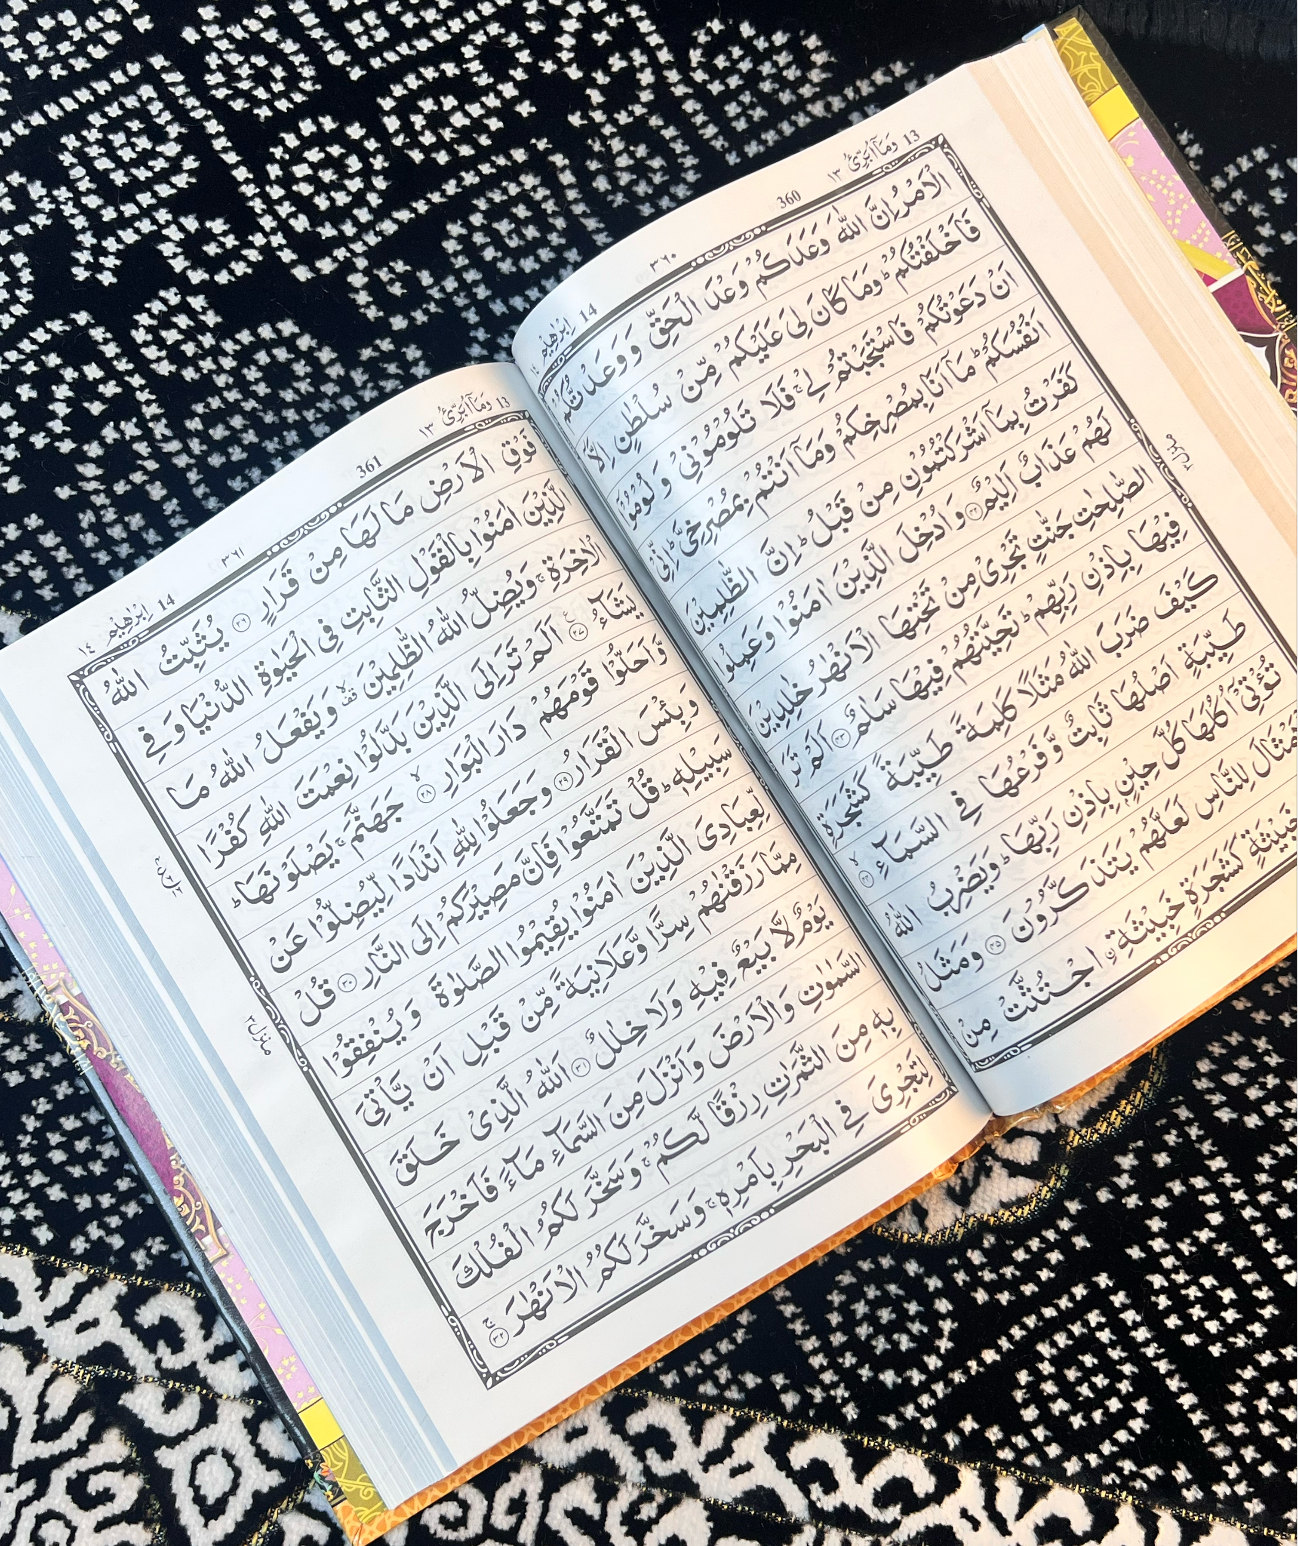 13 وَمَآ اُبَرِّئُ ١٣
360 ٣٦٠
14 اِبْرٰهِيْم ١٤
الْاَمْرُ اِنَّ اللّٰهَ وَعَدَكُمْ وَعْدَ الْحَقِّ وَوَعَدْتُّكُمْ
فَاَخْلَفْتُكُمْ ؕ وَمَا كَانَ لِىَ عَلَيْكُمْ مِّنْ سُلْطٰنٍ اِلَّاۤ
اَنْ دَعَوْتُكُمْ فَاسْتَجَبْتُمْ لِىْ ۚ فَلَا تَلُوْمُوْنِىْ وَلُوْمُوْۤا
اَنْفُسَكُمْ ؕ مَاۤ اَنَا بِمُصْرِخِكُمْ وَمَاۤ اَنْتُمْ بِمُصْرِخِىَّ ؕ اِنِّىْ
كَفَرْتُ بِمَاۤ اَشْرَكْتُمُوْنِ مِنْ قَبْلُ ؕ اِنَّ الظّٰلِمِيْنَ
لَهُمْ عَذَابٌ اَلِيْمٌ ٢٢ وَاُدْخِلَ الَّذِيْنَ اٰمَنُوْا وَعَمِلُوا
الصّٰلِحٰتِ جَنّٰتٍ تَجْرِىْ مِنْ تَحْتِهَا الْاَنْهٰرُ خٰلِدِيْنَ
فِيْهَا بِاِذْنِ رَبِّهِمْ ؕ تَحِيَّتُهُمْ فِيْهَا سَلٰمٌ ٢٣ اَلَمْ تَرَ
كَيْفَ ضَرَبَ اللّٰهُ مَثَلًا كَلِمَةً طَيِّبَةً كَشَجَرَةٍ
طَيِّبَةٍ اَصْلُهَا ثَابِتٌ وَّفَرْعُهَا فِى السَّمَآءِ ۙ ٢٤
تُؤْتِىْۤ اُكُلَهَا كُلَّ حِيْنٍۢ بِاِذْنِ رَبِّهَا ؕ وَيَضْرِبُ اللّٰهُ
لِلنَّاسِ لَعَلَّهُمْ يَتَذَكَّرُوْنَ ٢٥ وَمَثَلُ
كَشَجَرَةٍ خَبِيْثَةِ اۨجْتُثَّتْ مِنْ
منزل ٣
13 وَمَآ اُبَرِّئُ ١٣
361 ٣٦١
14 اِبْرٰهِيْم ١٤
فَوْقِ الْاَرْضِ مَا لَهَا مِنْ قَرَارٍ ٢٦ يُثَبِّتُ اللّٰهُ
الَّذِيْنَ اٰمَنُوْا بِالْقَوْلِ الثَّابِتِ فِى الْحَيٰوةِ الدُّنْيَا وَفِى
الْاٰخِرَةِ ۚ وَيُضِلُّ اللّٰهُ الظّٰلِمِيْنَ وَيَفْعَلُ اللّٰهُ مَا
يَشَآءُ ٢٧ اَلَمْ تَرَ اِلَى الَّذِيْنَ بَدَّلُوْا نِعْمَتَ اللّٰهِ كُفْرًا
وَّاَحَلُّوْا قَوْمَهُمْ دَارَ الْبَوَارِ ۙ ٢٨ جَهَنَّمَ ۚ يَصْلَوْنَهَا ؕ
وَبِئْسَ الْقَرَارُ ٢٩ وَجَعَلُوْا لِلّٰهِ اَنْدَادًا لِّيُضِلُّوْا عَنْ
سَبِيْلِهٖ ؕ قُلْ تَمَتَّعُوْا فَاِنَّ مَصِيْرَكُمْ اِلَى النَّارِ ٣٠ قُلْ
لِّعِبَادِىَ الَّذِيْنَ اٰمَنُوْا يُقِيْمُوا الصَّلٰوةَ وَيُنْفِقُوْا
مِمَّا رَزَقْنٰهُمْ سِرًّا وَّعَلَانِيَةً مِّنْ قَبْلِ اَنْ يَّاْتِىَ
يَوْمٌ لَّا بَيْعٌ فِيْهِ وَلَا خِلٰلٌ ٣١ اَللّٰهُ الَّذِىْ خَلَقَ
السَّمٰوٰتِ وَالْاَرْضَ وَاَنْزَلَ مِنَ السَّمَآءِ مَآءً فَاَخْرَجَ
بِهٖ مِنَ الثَّمَرٰتِ رِزْقًا لَّكُمْ ۚ وَسَخَّرَ لَكُمُ الْفُلْكَ
لِتَجْرِىَ فِى الْبَحْرِ بِاَمْرِهٖ ۚ وَسَخَّرَ لَكُمُ الْاَنْهٰرَ ۚ ٣٢
منزل ٣